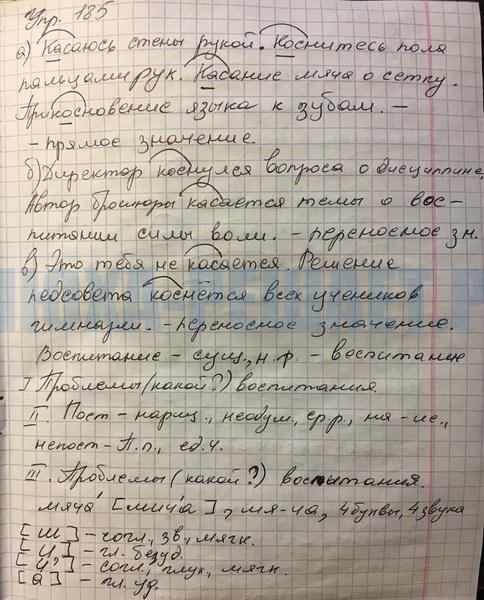 Упр. 185
а) Касаюсь стены рукой. Коснитесь пола
пальцами рук. Касание мяча о сетку.
Прикосновение языка к зубам. –
– прямое значение.
б) Директор коснулся вопроса о дисциплине.
Автор брошюры касается темы о вос-
питании силы воли. – переносное зн.
в) Это тебя не касается. Решение
педсовета коснётся всех учеников
гимназии. – переносное значение.
Воспитание – сущ., н.ф. – воспитание
I Проблемы (какой?) воспитания.
II. Пост – нариц., неодуш., ср.р., на -ие.,
непост – П.п., ед.ч.
III. Проблемы (какой?) воспитания.
мяча́ [мич'а], мя-ча, 4 буквы, 4 звука
[м] – согл., зв., мягк.
[и] – гл. безуд.
[ч'] – согл., глух., мягк.
[а] – гл. уд.